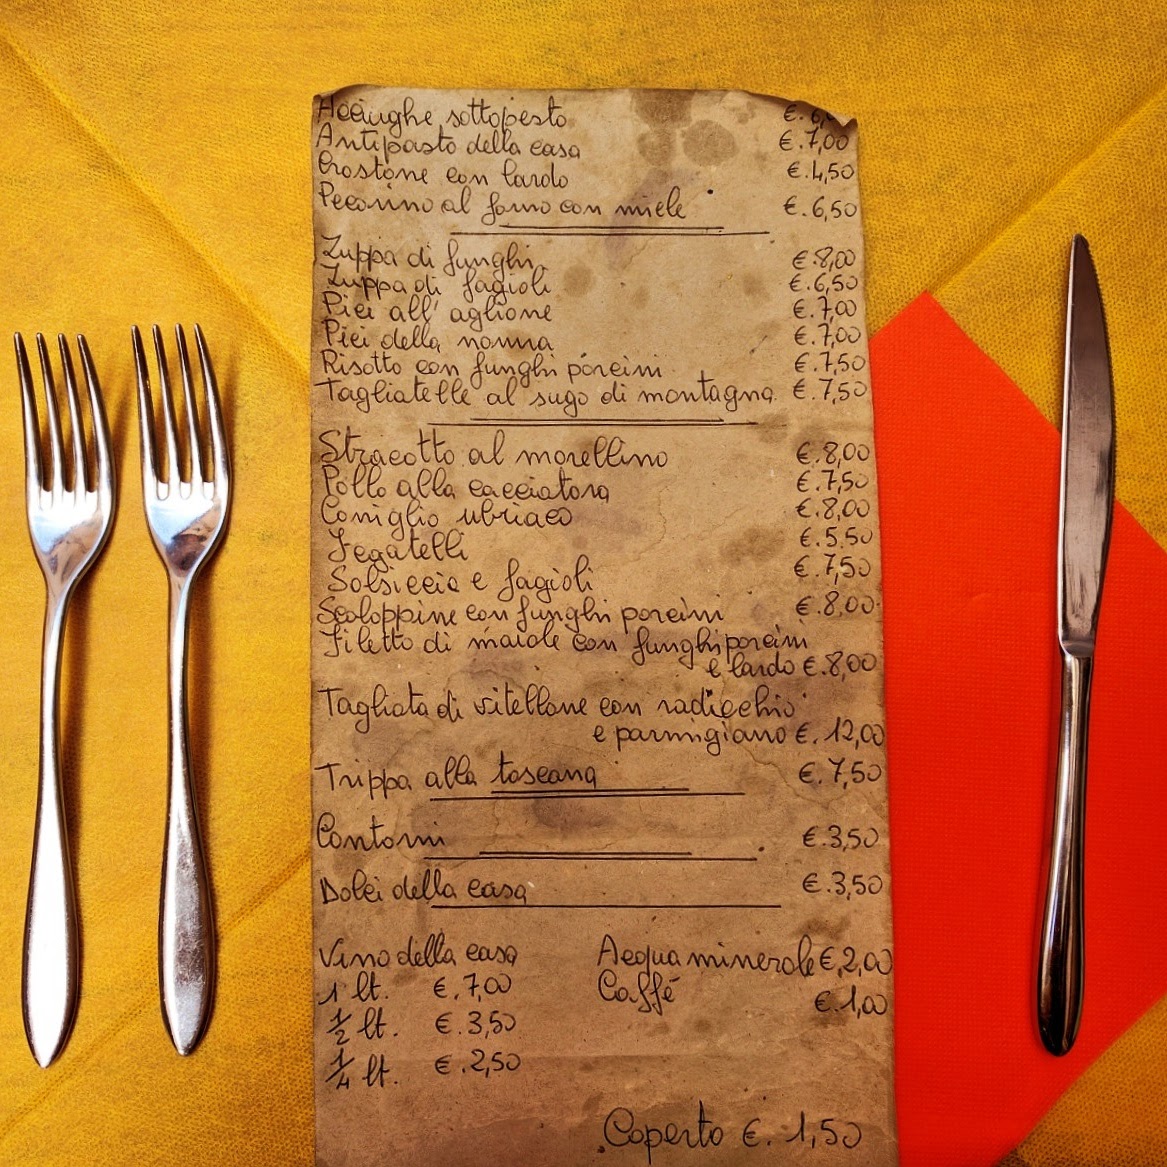 Acciughe sottopesto €. 6,
Antipasto della casa €. 7,00
Crostone con lardo €. 4,50
Pecorino al forno con miele €. 6,50
Zuppa di funghi €. 8,00
Zuppa di fagioli €. 6,50
Pici all' aglione €. 7,00
Pici della nonna €. 7,00
Risotto con funghi porcini €. 7,50
Tagliatelle al sugo di montagna €. 7,50
Stracotto al morellino €. 8,00
Pollo alla cacciatora €. 7,50
Coniglio ubriaco €. 8,00
Fegatelli €. 5,50
Salsiccia e fagioli €. 7,50
Scaloppine con funghi porcini €. 8,00
Filetto di maiale con funghi porcini
e lardo €. 8,00
Tagliata di vitellone con radicchio
e parmigiano €. 12,00
Trippa alla toscana €. 7,50
Contorni €. 3,50
Dolci della casa €. 3,50
Vino della casa
1 lt. €. 7,00
1/2 lt. €. 3,50
1/4 lt. €. 2,50
Acqua minerale €. 2,00
Caffé €. 1,00
Coperto €. 1,50